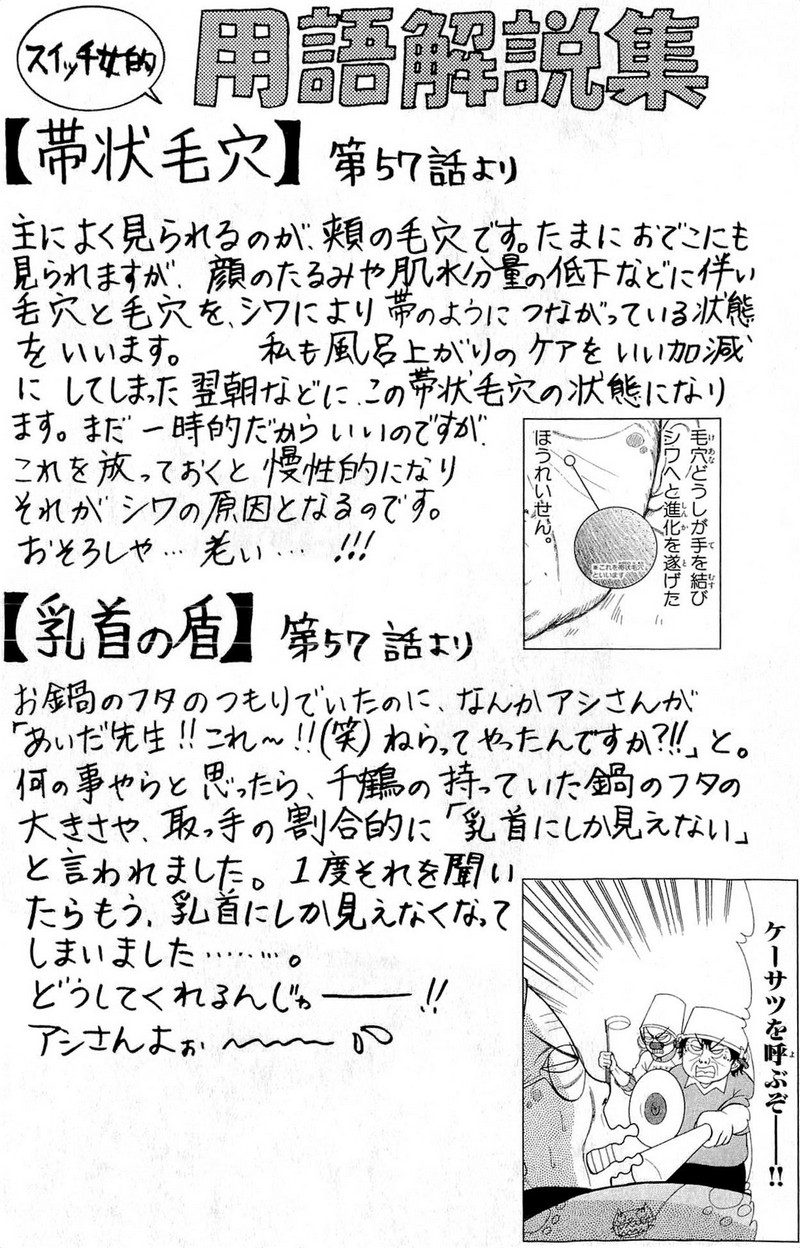 スイッチ女的
用語解説集
【帯状毛穴】 第57話より
主によく見られるのが、頬の毛穴です。たまにおでこにも
見られますが、顔のたるみや肌水分量の低下などに伴い
毛穴と毛穴を、シワにより帯のようにつながっている状態
をいいます。 私も風呂上がりのケアをいい加減
にしてしまった翌朝などに、この帯状毛穴の状態になり
ます。まだ一時的だからいいのですが、
これを放っておくと慢性的になり
それがシワの原因となるのです。
おそろしや…老い…!!!
毛穴どうしが手を結び
シワへと進化を遂げた
ほうれいせん。
※これを帯状毛穴
といいます
【乳首の盾】 第57話より
お鍋のフタのつもりでいたのに、なんかアシさんが
「あいだ先生!!これ〜!!(笑)ねらってやったんですか?!!」と。
何の事やらと思ったら、千鶴の持っていた鍋のフタの
大きさや、取っ手の割合的に「乳首にしか見えない」
と言われました。1度それを聞い
たらもう、乳首にしか見えなくなって
しまいました………。
どうしてくれるんじゃ――!!
アシさんよぉ〜〜〜
ケーサツを呼ぶぞ――!!